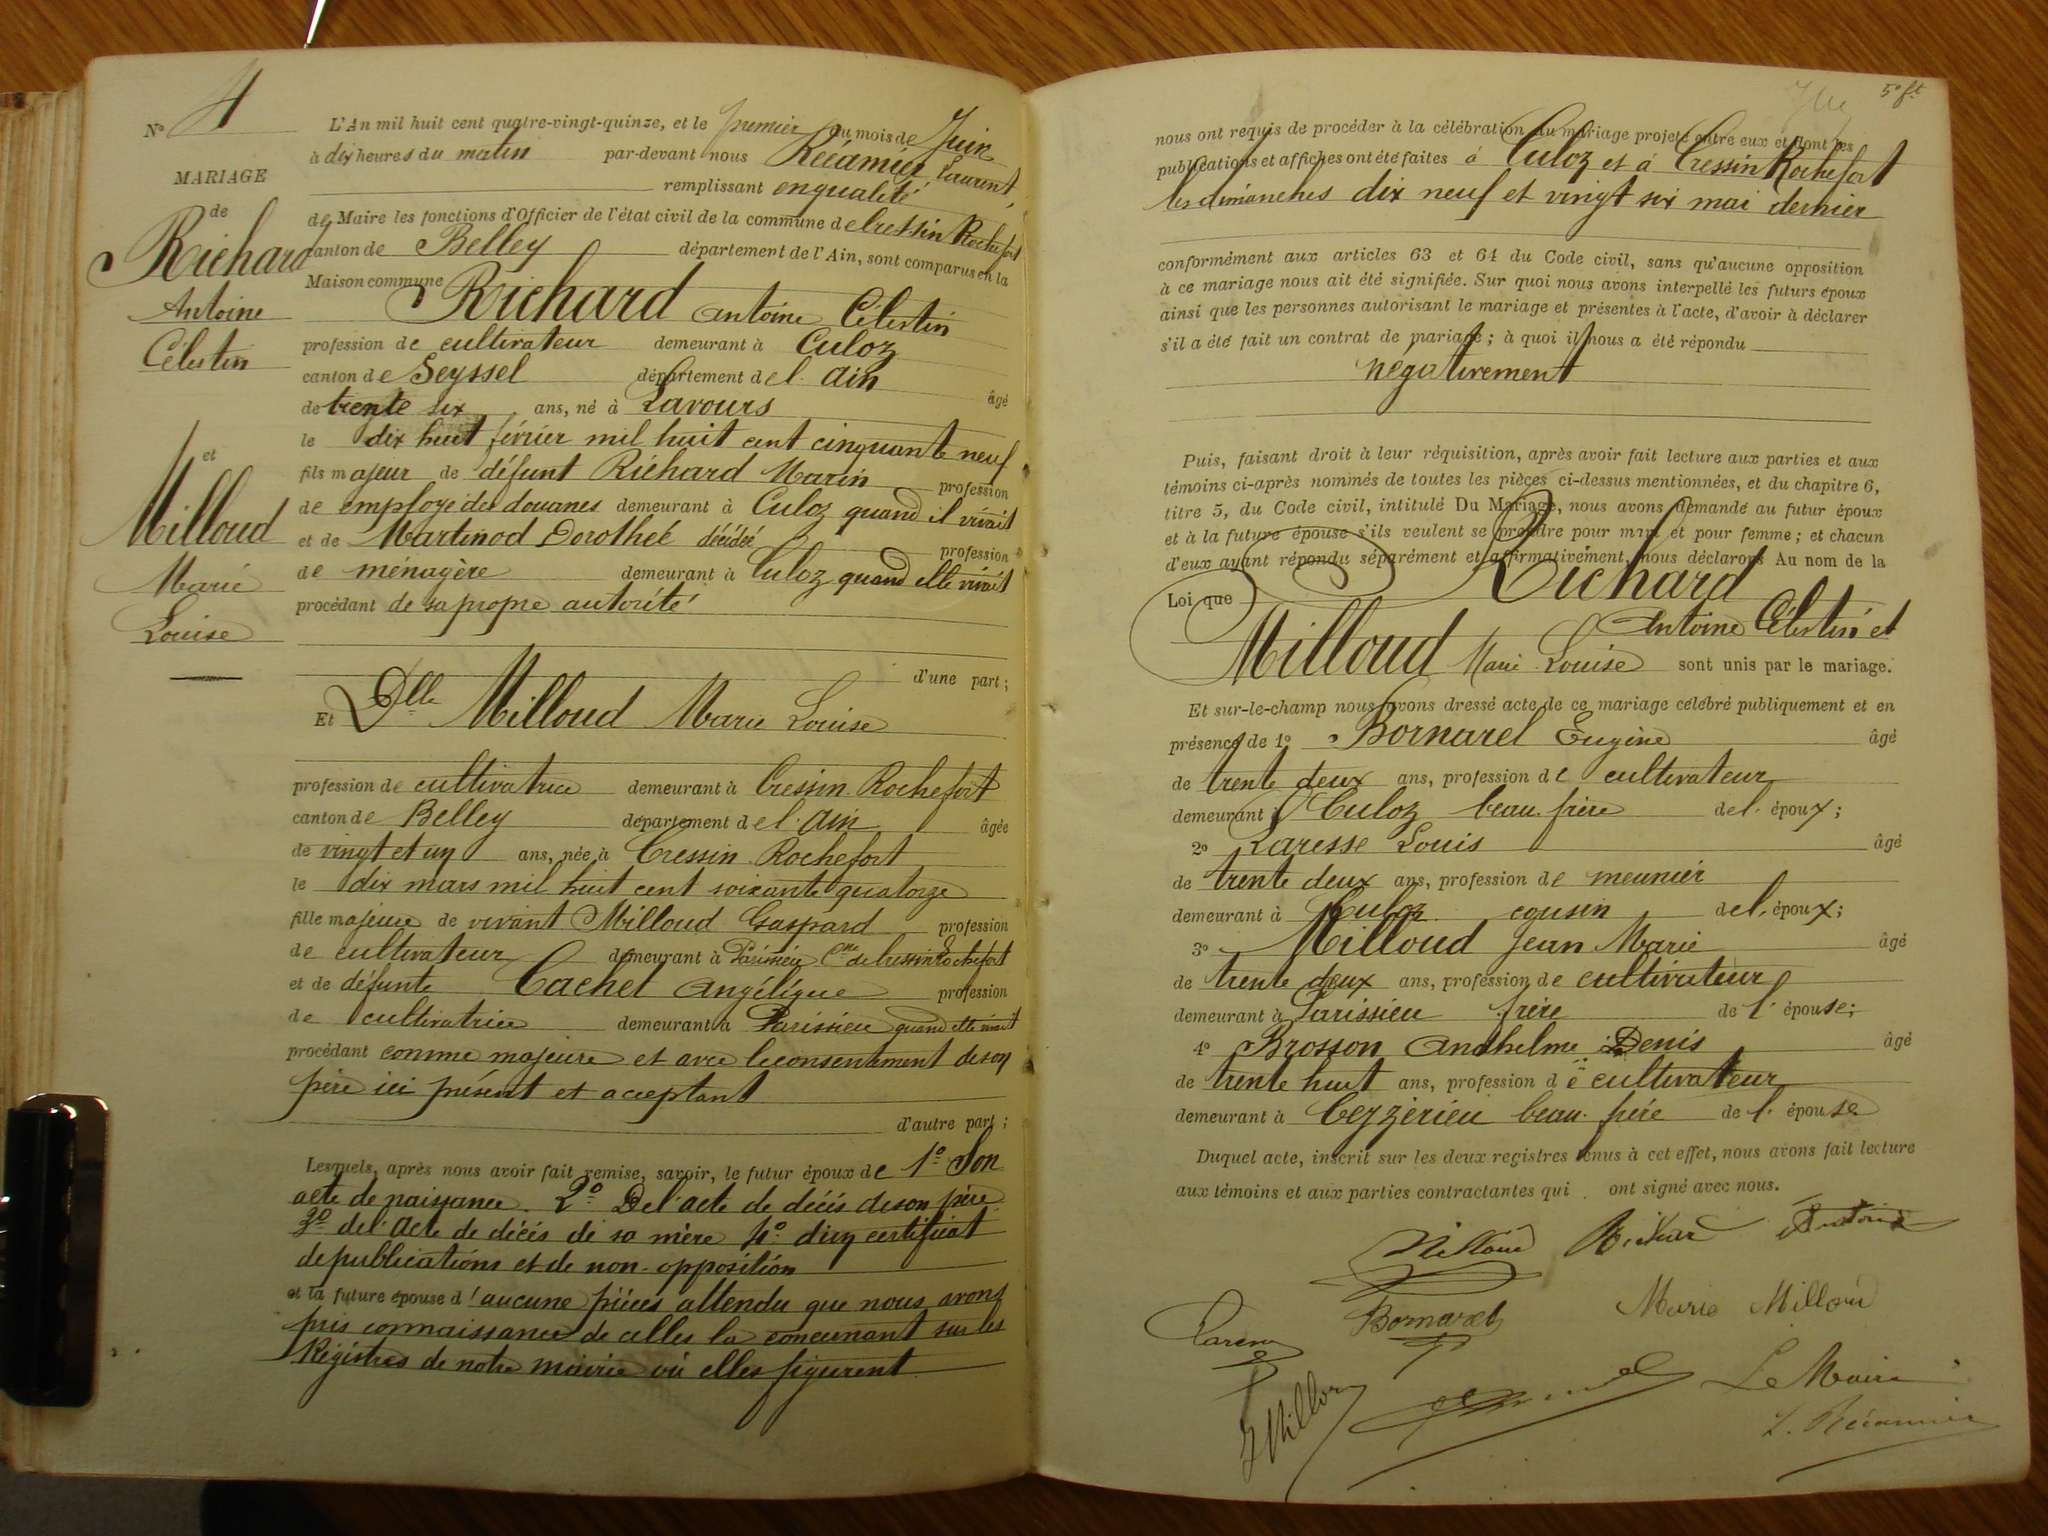 N° 4
MARIAGE
de
Richard
Antoine
Célestin
et
Milloud
Marie
Louise
L'An mil huit cent quatre-vingt-quinze, et le premier du mois de Juin
à dix heures du matin par-devant nous Récamier Laurent,
remplissant en qualité
de Maire les fonctions d'Officier de l'état civil de la commune de Cressin Rochefort
canton de Belley département de l'Ain, sont comparus en la
Maison commune Richard Antoine Célestin
profession de cultivateur demeurant à Culoz
canton de Seyssel département de l'Ain
âgé
de trente six ans, né à Lavours
le dix huit février mil huit cent cinquante neuf
fils majeur de défunt Richard Marin profession
de employé des douanes demeurant à Culoz quand il vivait
et de Martinod Dorothée décédée profession
de ménagère demeurant à Culoz quand elle vivait
procédant de sa propre autorité
d'une part;
Et Dlle Milloud Marie Louise
profession de cultivatrice demeurant à Cressin Rochefort
canton de Belley département de l'Ain âgée
de vingt et un ans, née à Cressin Rochefort
le dix mars mil huit cent soixante quatorze
fille majeure de vivant Milloud Gaspard profession
de cultivateur demeurant à Parissieu Cne de Cressin Rochefort
et de défunte Cachet Angélique profession
de cultivatrice demeurant à Parissieu quand elle vivait
procédant comme majeure et avec le consentement de son
père ici présent et acceptant
d'autre part;
Lesquels, après nous avoir fait remise, savoir, le futur époux de 1° Son
acte de naissance. 2° De l'acte de décés de son père
3° de l'acte de décés de sa mère 4° d'un certificat
de publications et de non-opposition
et la future épouse d'aucune pièces attendu que nous avons
pris connaissance de celles la concernant sur les
Régistres de notre mairie où elles figurent
5e ft
nous ont requis de procéder à la célébration du mariage projeté entre eux et dont les
publications et affiches ont été faites à Culoz et à Cressin Rochefort
les dimanches dix neuf et vingt six mai dernier
conformément aux articles 63 et 64 du Code civil, sans qu'aucune opposition
à ce mariage nous ait été signifiée. Sur quoi nous avons interpellé les futurs époux
ainsi que les personnes autorisant le mariage et présentes à l'acte, d'avoir à déclarer
s'il a été fait un contrat de mariage; à quoi il nous a été répondu
négativement
Puis, faisant droit à leur réquisition, après avoir fait lecture aux parties et aux
témoins ci-après nommés de toutes les pièces ci-dessus mentionnées, et du chapitre 6,
titre 5, du Code civil, intitulé Du Mariage, nous avons demandé au futur époux
et à la future épouse s'ils veulent se prendre pour mari et pour femme; et chacun
d'eux ayant répondu séparément et affirmativement, nous déclarons Au nom de la
Loi que Richard
Antoine Célestin et
Milloud Marie Louise sont unis par le mariage.
Et sur-le-champ nous avons dressé acte de ce mariage célébré publiquement et en
présence de 1° Bornarel Eugène âgé
de trente deux ans, profession de cultivateur
demeurant à Culoz beau-frère de l'époux;
2° Laresse Louis âgé
de trente deux ans, profession de meunier
demeurant à Culoz cousin de l'époux;
3° Milloud Jean Marie âgé
de trente deux ans, profession de cultivateur
demeurant à Parissieu frère de l'épouse;
4° Brosson Anthelme Denis âgé
de trente huit ans, profession de cultivateur
demeurant à Ceyzérieu beau-frère de l'épouse
Duquel acte, inscrit sur les deux registres tenus à cet effet, nous avons fait lecture
aux témoins et aux parties contractantes qui ont signé avec nous.
Milloud Richard Antoine
Bornarel Marie Milloud
Le Maire
L. Récamier